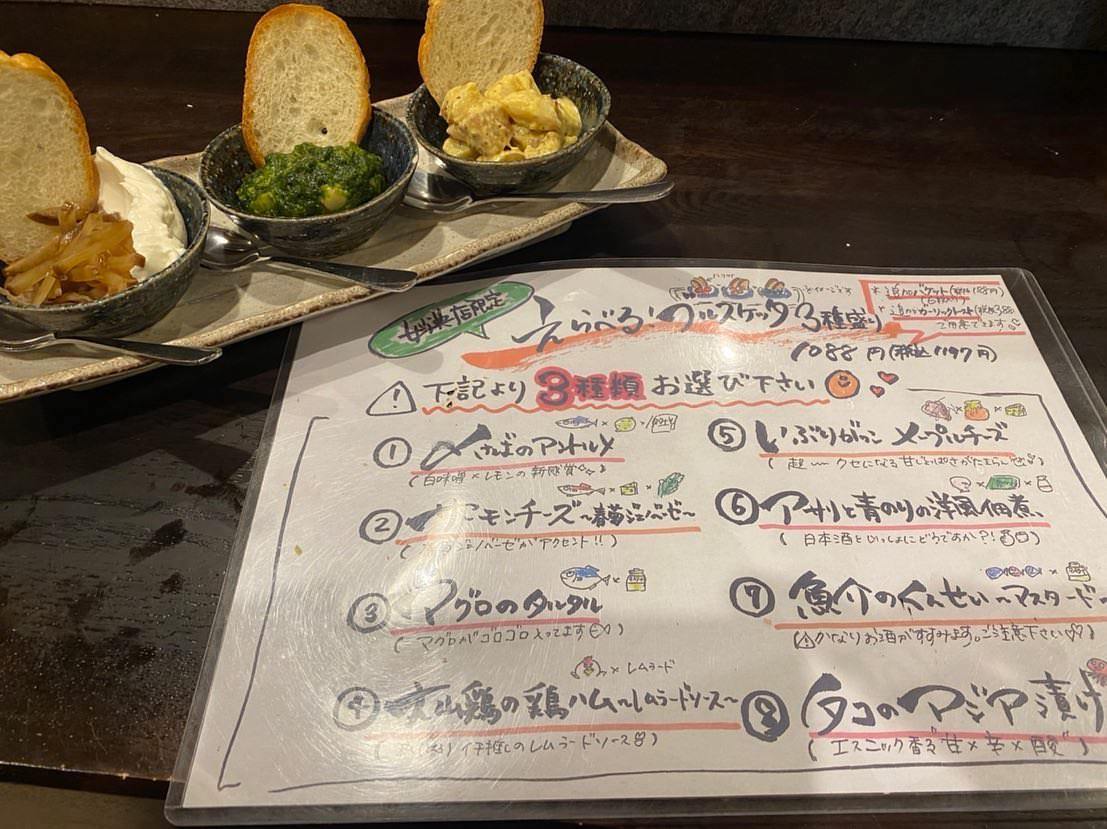 えらべる!ブルスケッタ3種盛り
1088円(税込1197円)
下記より3種類お選び下さい
①〆さばのアンホルメ
(白味噌×レモンの新感覚)
②サーモンチーズ〜春菊ジェノベーゼ〜
ジェノベーゼがアクセント!!)
③マグロのタルタル
(マグロがゴロゴロ入ってます)
×レムラード
④大山鶏の鶏ハム〜レムラードソース〜
イチ推しのレムラードソース)
⑤いぶりがっこメープルチーズ
(超〜クセになる甘じょっぱさがたまらん)
⑥アサリと青のりの洋風佃煮
(日本酒といっしょにどうですか?!)
⑦魚介のくんせい〜マスタード〜
(かなりお酒がすすみます。ご注意下さい)
⑧タコのアジア漬け
(エスニック香る甘×辛×酸)